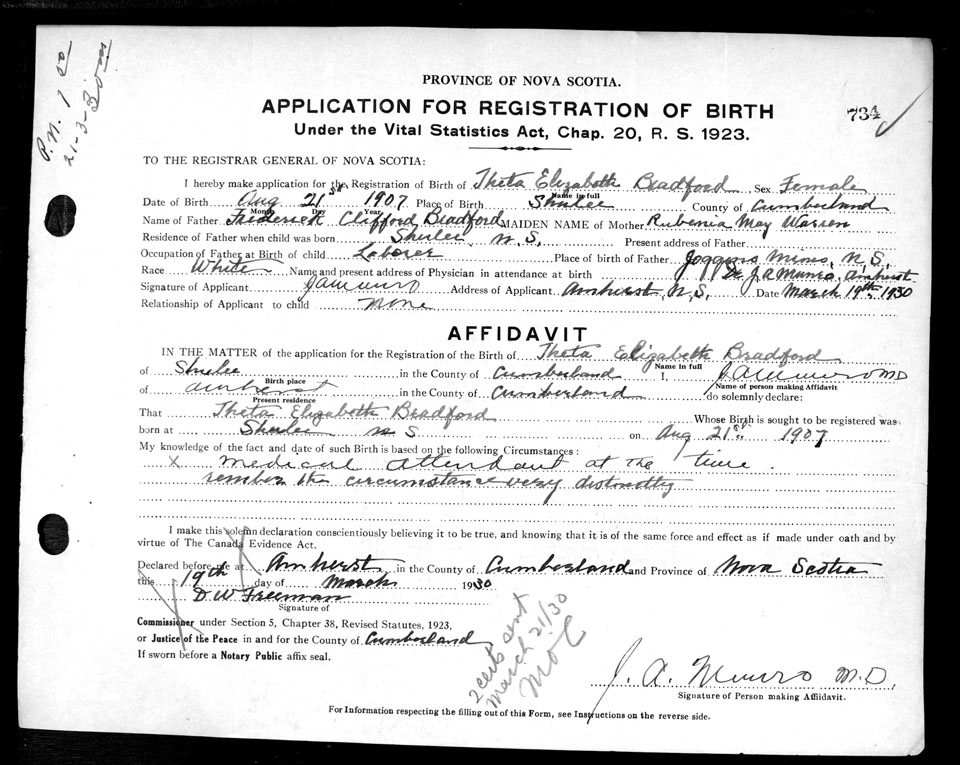 P.N. 1 50
21-3-30
PROVINCE OF NOVA SCOTIA.
APPLICATION FOR REGISTRATION OF BIRTH
734
Under the Vital Statistics Act, Chap. 20, R. S. 1923.
TO THE REGISTRAR GENERAL OF NOVA SCOTIA:
I hereby make application for the Registration of Birth of Theta Elizabeth Bradford Sex Female
Name in full
Date of Birth Aug 21st 1907 Place of Birth Shulee County of Cumberland
Month Day Year
Name of Father Frederick Clifford Bradford MAIDEN NAME of Mother Rubenia May Warren
Residence of Father when child was born Shulee, N.S. Present address of Father
Occupation of Father at Birth of child Laborer Place of birth of Father Joggins Mines, N.S.
Race White Name and present address of Physician in attendance at birth Dr J A Munro, Amherst
Signature of Applicant J A Munro Address of Applicant Amherst, N.S. Date March 19th, 1930
Relationship of Applicant to child None
AFFIDAVIT
IN THE MATTER of the application for the Registration of the Birth of Theta Elizabeth Bradford
Name in full
of Shulee in the County of Cumberland I, J A Munro MD
Birth place Name of person making Affidavit
of Amherst in the County of Cumberland do solemnly declare:
Present residence
That Theta Elizabeth Bradford Whose Birth is sought to be registered was
born at Shulee N S on Aug 21st 1907
My knowledge of the fact and date of such Birth is based on the following Circumstances:
X medical attendant at the time.
rember the circumstance very distinctly
I make this solemn declaration conscientiously believing it to be true, and knowing that it is of the same force and effect as if made under oath and by
virtue of The Canada Evidence Act.
Declared before me at Amherst in the County of Cumberland and Province of Nova Scotia
this 19th day of March 1930
D W Freeman
Signature of
Commissioner under Section 5, Chapter 38, Revised Statutes, 1923,
or Justice of the Peace in and for the County of Cumberland
If sworn before a Notary Public affix seal.
2 certs sent
March 21/30
J. A. Munro M.D.
Signature of Person making Affidavit.
For Information respecting the filling out of this Form, see Instructions on the reverse side.